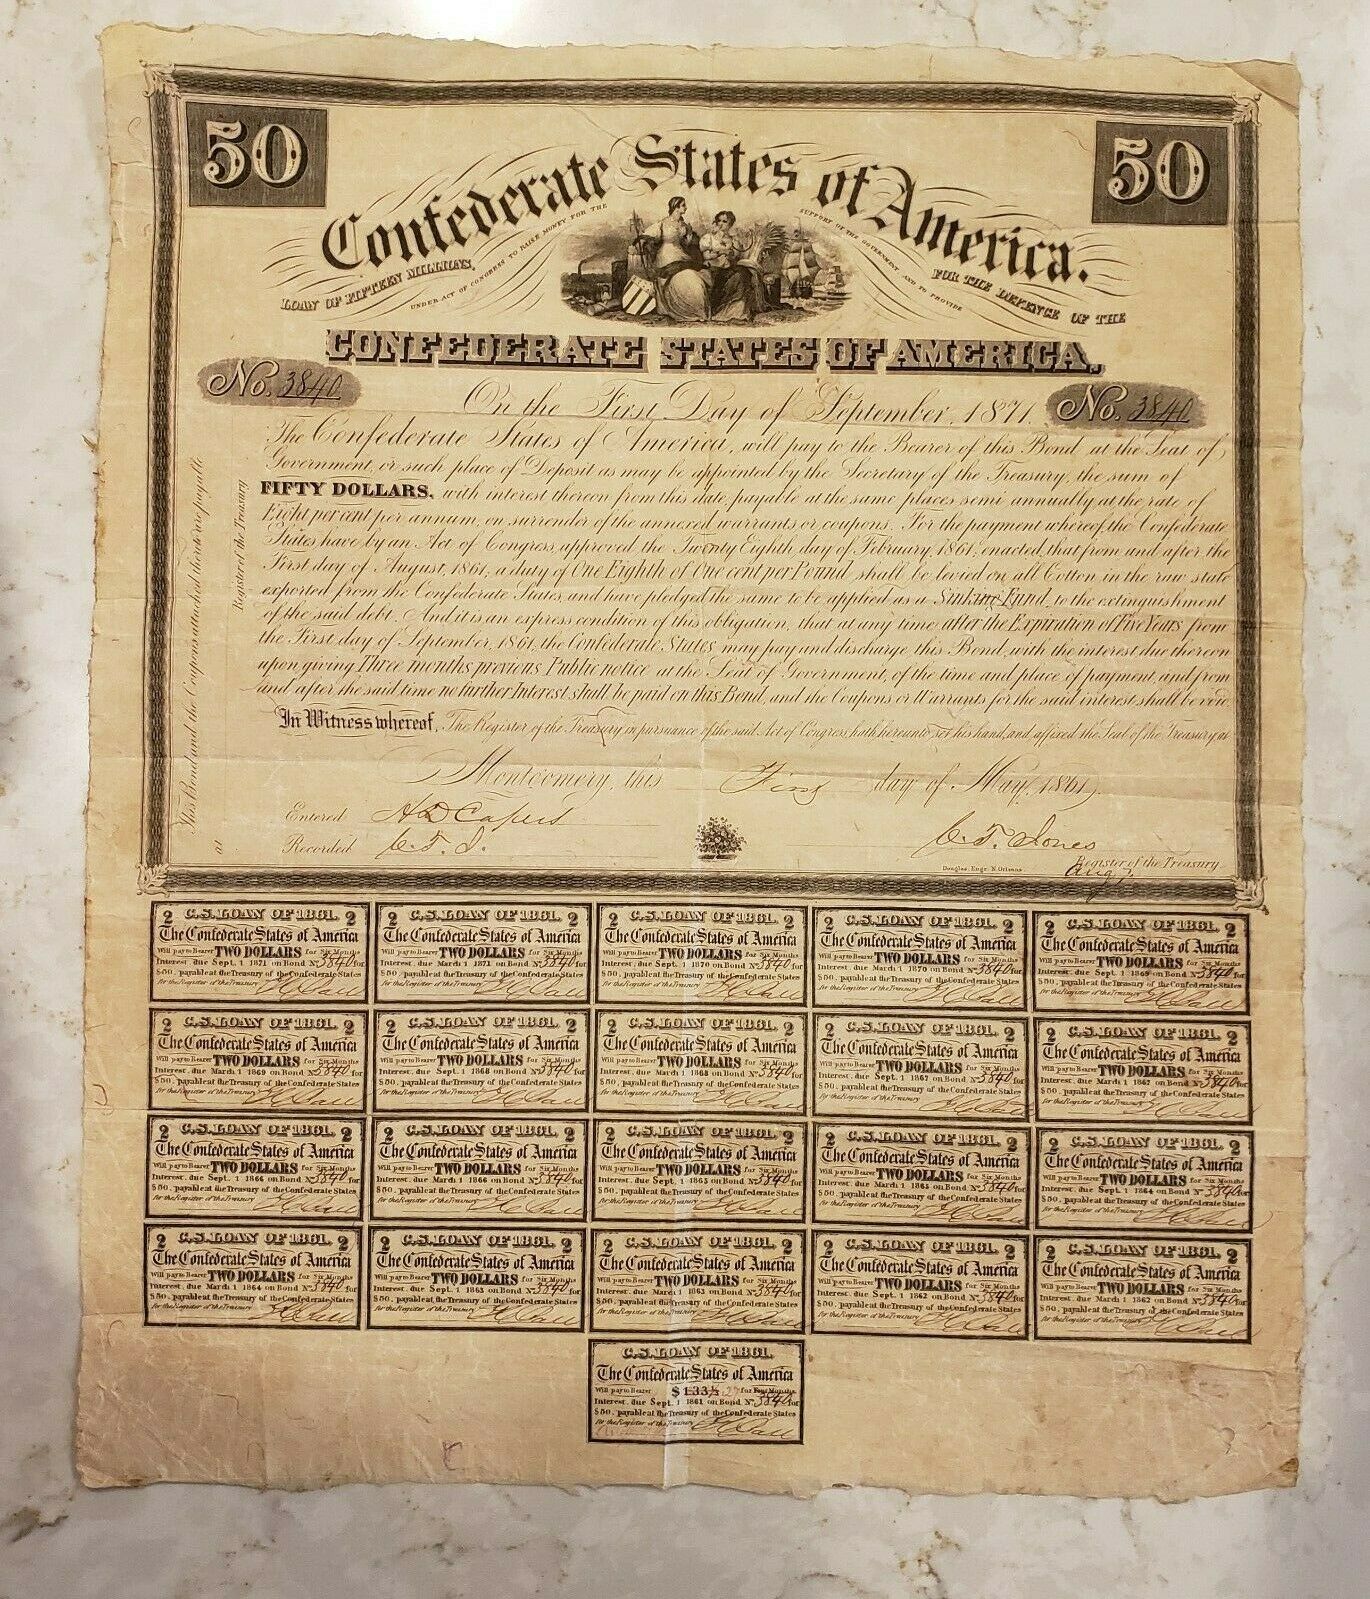 50
50
Confederate States of America.
LOAN OF FIFTEEN MILLIONS,
UNDER ACT OF CONGRESS TO RAISE MONEY FOR THE
SUPPORT OF THE GOVERNMENT AND TO PROVIDE
FOR THE DEFENCE OF THE
CONFEDERATE STATES OF AMERICA,
No. 3840
No. 3840
On the First Day of September, 1871.
The Confederate States of America, will pay to the Bearer of this Bond, at the Seat of
Government, or such place of Deposit as may be appointed by the Secretary of the Treasury the sum of
FIFTY DOLLARS, with interest thereon from this date, payable at the same places semi annually at the rate of
Eight per cent per annum, on surrender of the annexed warrants or coupons. For the payment whereof, the Confederate
States have by an Act of Congress, approved the Twenty Eighth day of February, 1861, enacted, that from and after the
First day of August, 1861, a duty of One Eighth of One cent per Pound shall be levied on all Cotton in the raw state
exported from the Confederate States, and have pledged the same to be applied as a Sinking Fund, to the extinguishment
of the said debt. And it is an express condition of this obligation, that at any time after the Expiration of Five Years from
the First day of September, 1861, the Confederate States may pay and discharge this Bond, with the interest due thereon
upon giving Three months previous Public notice at the Seat of Government, of the time and place of payment, and from
and after the said time no further Interest shall be paid on this Bond, and the Coupons or Warrants for the said interest shall be void.
In Witness whereof, The Register of the Treasury in pursuance of the said Act of Congress, hath hereunto set his hand, and affixed the Seal of the Treasury at
Montgomery, this First day of May, 1861.
Entered A D Capers
Recorded C. T. J.
C. T. Jones
Register of the Treasury
Douglas Engr. N. Orleans
This Bond and the Coupons attached thereto are payable
at
Register of the Treasury
2 C.S. LOAN OF 1861. 2
The Confederate States of America
Will pay to Bearer TWO DOLLARS for Six Months
Interest due Sept. 1 1871 on Bond No 3840 for
$50, payable at the Treasury of the Confederate States
for the Register of the Treasury
2 C.S. LOAN OF 1861. 2
The Confederate States of America
Will pay to Bearer TWO DOLLARS for Six Months
Interest due March 1 1871 on Bond No 3840 for
$50, payable at the Treasury of the Confederate States
for the Register of the Treasury
2 C.S. LOAN OF 1861. 2
The Confederate States of America
Will pay to Bearer TWO DOLLARS for Six Months
Interest due Sept. 1 1870 on Bond No 3840 for
$50, payable at the Treasury of the Confederate States
for the Register of the Treasury
2 C.S. LOAN OF 1861. 2
The Confederate States of America
Will pay to Bearer TWO DOLLARS for Six Months
Interest due March 1 1870 on Bond No 3840 for
$50, payable at the Treasury of the Confederate States
for the Register of the Treasury
2 C.S. LOAN OF 1861. 2
The Confederate States of America
Will pay to Bearer TWO DOLLARS for Six Months
Interest due Sept. 1 1869 on Bond No 3840 for
$50, payable at the Treasury of the Confederate States
for the Register of the Treasury
2 C.S. LOAN OF 1861. 2
The Confederate States of America
Will pay to Bearer TWO DOLLARS for Six Months
Interest due March 1 1869 on Bond No 3840 for
$50, payable at the Treasury of the Confederate States
for the Register of the Treasury
2 C.S. LOAN OF 1861. 2
The Confederate States of America
Will pay to Bearer TWO DOLLARS for Six Months
Interest due Sept. 1 1868 on Bond No 3840 for
$50, payable at the Treasury of the Confederate States
for the Register of the Treasury
2 C.S. LOAN OF 1861. 2
The Confederate States of America
Will pay to Bearer TWO DOLLARS for Six Months
Interest due March 1 1868 on Bond No 3840 for
$50, payable at the Treasury of the Confederate States
for the Register of the Treasury
2 C.S. LOAN OF 1861. 2
The Confederate States of America
Will pay to Bearer TWO DOLLARS for Six Months
Interest due Sept. 1 1867 on Bond No 3840 for
$50, payable at the Treasury of the Confederate States
for the Register of the Treasury
2 C.S. LOAN OF 1861. 2
The Confederate States of America
Will pay to Bearer TWO DOLLARS for Six Months
Interest due March 1 1867 on Bond No 3840 for
$50, payable at the Treasury of the Confederate States
for the Register of the Treasury
2 C.S. LOAN OF 1861. 2
The Confederate States of America
Will pay to Bearer TWO DOLLARS for Six Months
Interest due Sept. 1 1866 on Bond No 3840 for
$50, payable at the Treasury of the Confederate States
for the Register of the Treasury
2 C.S. LOAN OF 1861. 2
The Confederate States of America
Will pay to Bearer TWO DOLLARS for Six Months
Interest due March 1 1866 on Bond No 3840 for
$50, payable at the Treasury of the Confederate States
for the Register of the Treasury
2 C.S. LOAN OF 1861. 2
The Confederate States of America
Will pay to Bearer TWO DOLLARS for Six Months
Interest due Sept. 1 1865 on Bond No 3840 for
$50, payable at the Treasury of the Confederate States
for the Register of the Treasury
2 C.S. LOAN OF 1861. 2
The Confederate States of America
Will pay to Bearer TWO DOLLARS for Six Months
Interest due March 1 1865 on Bond No 3840 for
$50, payable at the Treasury of the Confederate States
for the Register of the Treasury
2 C.S. LOAN OF 1861. 2
The Confederate States of America
Will pay to Bearer TWO DOLLARS for Six Months
Interest due Sept. 1 1864 on Bond No 3840 for
$50, payable at the Treasury of the Confederate States
for the Register of the Treasury
2 C.S. LOAN OF 1861. 2
The Confederate States of America
Will pay to Bearer TWO DOLLARS for Six Months
Interest due March 1 1864 on Bond No 3840 for
$50, payable at the Treasury of the Confederate States
for the Register of the Treasury
2 C.S. LOAN OF 1861. 2
The Confederate States of America
Will pay to Bearer TWO DOLLARS for Six Months
Interest due Sept. 1 1863 on Bond No 3840 for
$50, payable at the Treasury of the Confederate States
for the Register of the Treasury
2 C.S. LOAN OF 1861. 2
The Confederate States of America
Will pay to Bearer TWO DOLLARS for Six Months
Interest due March 1 1863 on Bond No 3840 for
$50, payable at the Treasury of the Confederate States
for the Register of the Treasury
2 C.S. LOAN OF 1861. 2
The Confederate States of America
Will pay to Bearer TWO DOLLARS for Six Months
Interest due Sept. 1 1862 on Bond No 3840 for
$50, payable at the Treasury of the Confederate States
for the Register of the Treasury
2 C.S. LOAN OF 1861. 2
The Confederate States of America
Will pay to Bearer TWO DOLLARS for Six Months
Interest due March 1 1862 on Bond No 3840 for
$50, payable at the Treasury of the Confederate States
for the Register of the Treasury
C.S. LOAN OF 1861.
The Confederate States of America
Will pay to Bearer $1.33⅓ for Four Months
Interest due Sept. 1 1861 on Bond No 3840 for
$50, payable at the Treasury of the Confederate States
for the Register of the Treasury